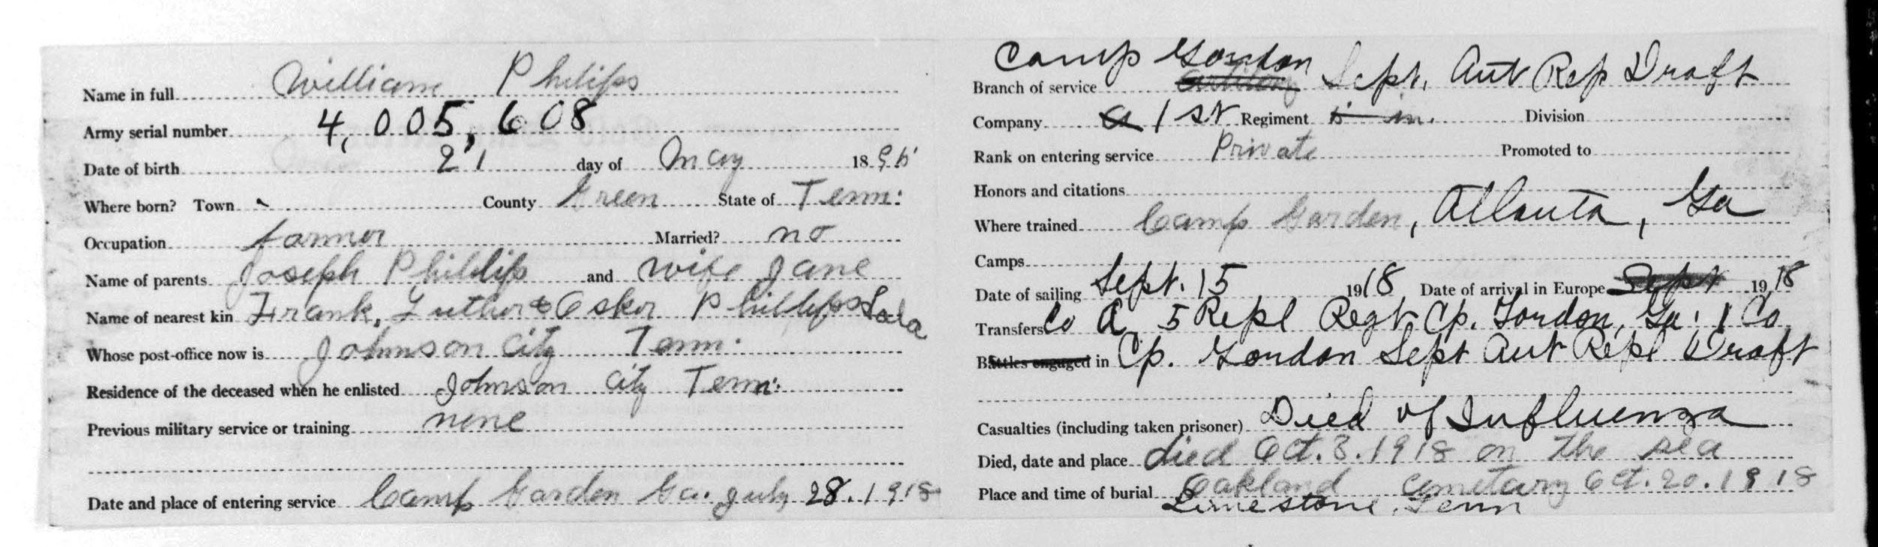 Name in full William Philips
Army serial number 4,005,608
Date of birth 21 day of May 1896
Where born? Town County Green State of Tenn.
Occupation farmer Married? no
Name of parents Joseph Phillips and wife Jane
Name of nearest kin Frank, Luther & Osker Phillips Lola
Whose post-office now is Johnson City Tenn.
Residence of the deceased when he enlisted Johnson City Tenn.
Previous military service or training none
Date and place of entering service Camp Garden Ga. July 28. 1918
Camp Gordon
Branch of service Artillery Sept. Aut Rep Draft
Company a 1st Regiment 5 in. Division
Rank on entering service Private Promoted to
Honors and citations
Where trained Camp Garden, Atlanta, Ga
Camps
Date of sailing Sept. 15 1918 Date of arrival in Europe Sept 1918
Transfers Co A, 5 Repl Regt Cp. Gordon, Ga. 1 Co,
Battles engaged in Cp. Gordon Sept Aut Repl Draft
Casualties (including taken prisoner) Died of Influenza
Died, date and place died Oct. 3. 1918 on the sea
Place and time of burial Oakland Cemetary Oct. 20. 1918
Limestone, Tenn